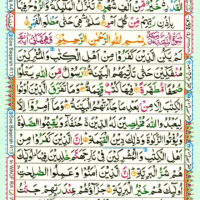 الْقَدْرِ خَيْرٌ مِّنْ اَلْفِ شَهْرٍ تَنَزَّلُ الْمَلٰٓئِكَةُ وَالرُّوْحُ فِيْهَا
بِاِذْنِ رَبِّهِمْ مِّنْ كُلِّ اَمْرٍ سَلٰمٌ هِيَ حَتّٰى مَطْلَعِ الْفَجْرِ
بِسْمِ اللّٰهِ الرَّحْمٰنِ الرَّحِيْمِ
لَمْ يَكُنِ الَّذِيْنَ كَفَرُوْا مِنْ اَهْلِ الْكِتٰبِ وَالْمُشْرِكِيْنَ
مُنْفَكِّيْنَ حَتّٰى تَاْتِيَهُمُ الْبَيِّنَةُ رَسُوْلٌ مِّنَ اللّٰهِ يَتْلُوْا صُحُفًا
مُّطَهَّرَةً فِيْهَا كُتُبٌ قَيِّمَةٌ وَمَا تَفَرَّقَ الَّذِيْنَ اُوْتُوا
الْكِتٰبَ اِلَّا مِنْ بَعْدِ مَا جَآءَتْهُمُ الْبَيِّنَةُ وَمَآ اُمِرُوْٓا اِلَّا
لِيَعْبُدُوا اللّٰهَ مُخْلِصِيْنَ لَهُ الدِّيْنَ حُنَفَآءَ وَيُقِيْمُوا الصَّلٰوةَ
وَيُؤْتُوا الزَّكٰوةَ وَذٰلِكَ دِيْنُ الْقَيِّمَةِ اِنَّ الَّذِيْنَ كَفَرُوْا مِنْ
اَهْلِ الْكِتٰبِ وَالْمُشْرِكِيْنَ فِيْ نَارِ جَهَنَّمَ خٰلِدِيْنَ فِيْهَا اُولٰٓئِكَ
هُمْ شَرُّ الْبَرِيَّةِ اِنَّ الَّذِيْنَ اٰمَنُوْا وَعَمِلُوا الصّٰلِحٰتِ
اُولٰٓئِكَ هُمْ خَيْرُ الْبَرِيَّةِ جَزَآؤُهُمْ عِنْدَ رَبِّهِمْ جَنّٰتُ